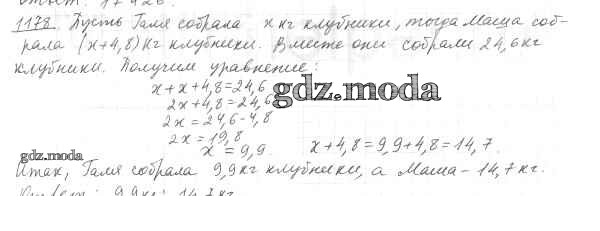 1178. Пусть Галя собрала x кг клубники, тогда Маша соб-
рала (x+4,8) кг клубники. Вместе они собрали 24,6 кг
клубники. Получим уравнение:
x+x+4,8=24,6
2x+4,8=24,6
gdz.moda
2x=24,6-4,8
2x=19,8
x=9,9. x+4,8=9,9+4,8=14,7.
gdz.moda
Итак, Галя собрала 9,9 кг клубники, а Маша - 14,7 кг.